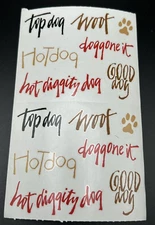 top dog woof
doggone it
Hotdog
GOOD
dog
hot diggity dog
top dog woof
doggone it
Hotdog
GOOD
dog
hot diggity dog